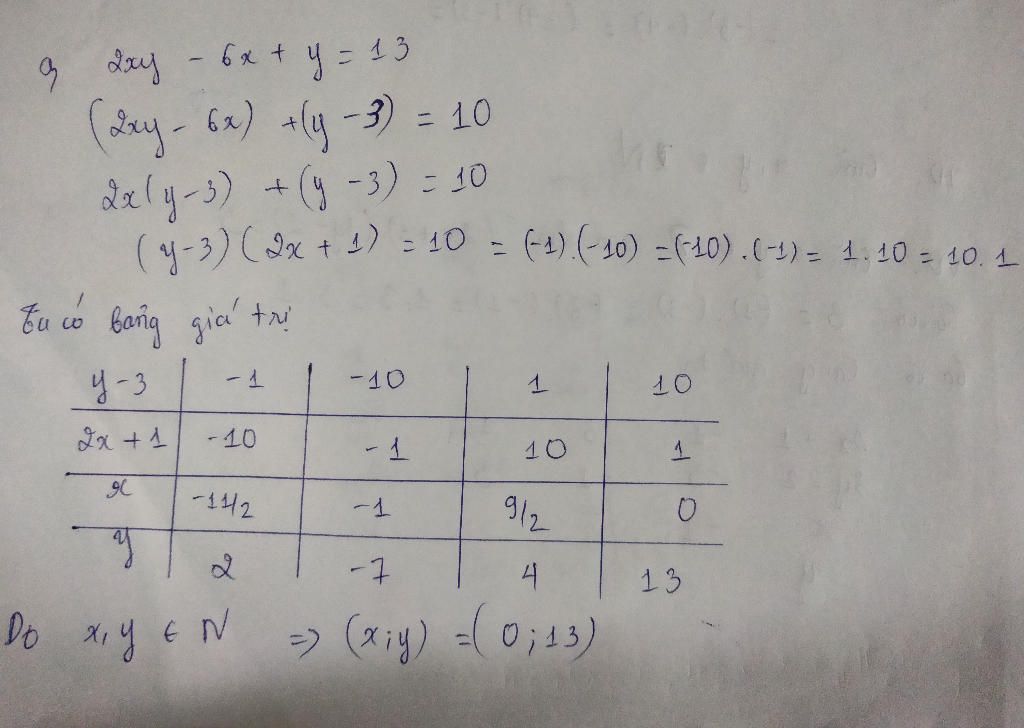 a, 2xy - 6x + y = 13
(2xy - 6x) + (y - 3) = 10
2x(y-3) + (y - 3) = 10
(y-3)(2x + 1) = 10 = (-1).(-10) = (-10).(-1) = 1.10 = 10.1
Ta có bảng giá trị
y-3 | -1 | -10 | 1 | 10
2x + 1 | -10 | -1 | 10 | 1
x | -11/2 | -1 | 9/2 | 0
y | 2 | -7 | 4 | 13
Do x, y ∈ N => (x;y) = (0;13)